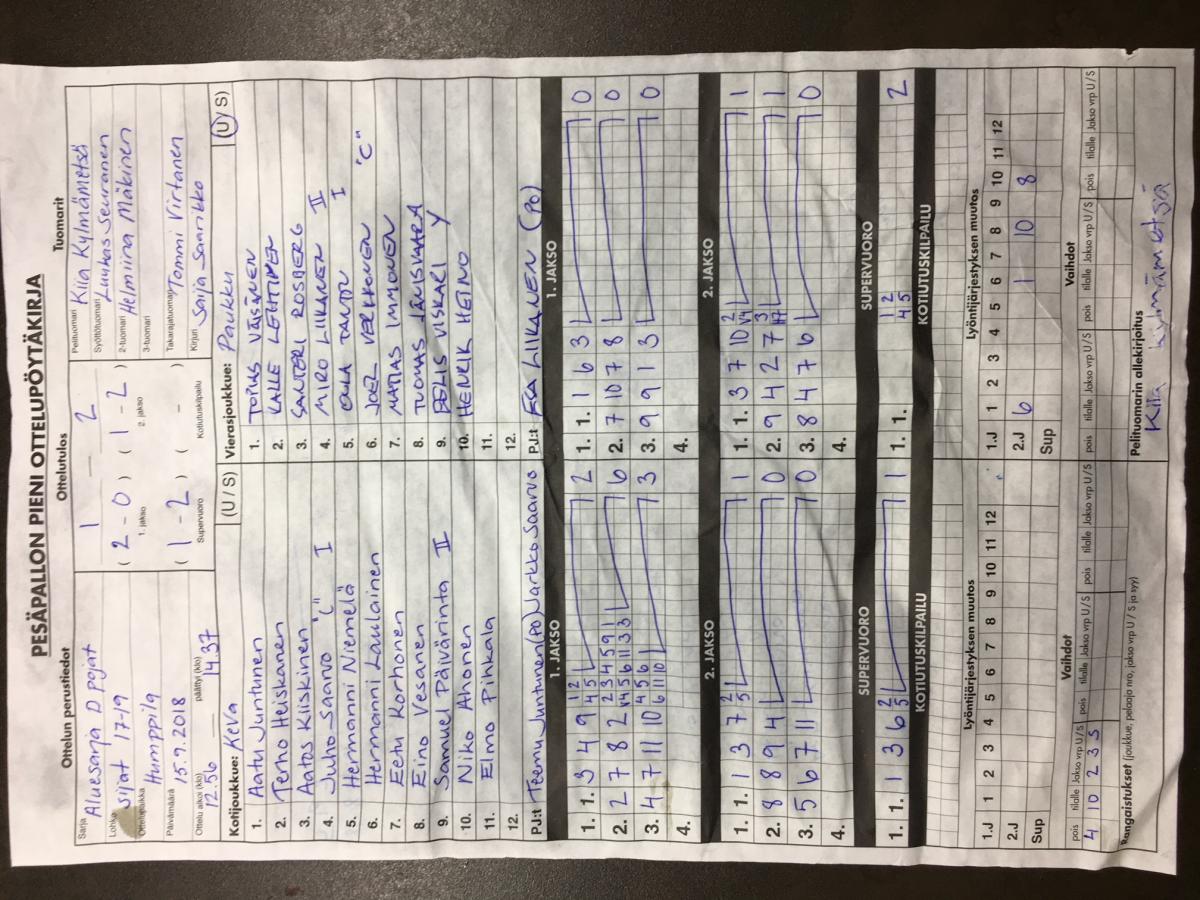 PESÄPALLON PIENI OTTELUPÖYTÄKIRJA
Ottelun perustiedot
Ottelutulos
Tuomarit
Sarja Aluesarja D pojat
Lohko sijat 17-19
Ottelupaikka Humppila
Päivämäärä 15.9.2018
Ottelu alkoi (klo) 12.56 päättyi (klo) 14.37
1 - 2
( 2 - 0 ) ( 1 - 2 )
1. jakso 2. jakso
( 1 - 2 ) ( - )
Supervuoro Kotiutuskilpailu
Pelituomari Kiia Kylmämetsä
Syöttötuomari Luukas Seuranen
2-tuomari Helmiina Mäkinen
3-tuomari
Takarajatuomari Tommi Virtanen
Kirjuri Saija Saarikko
Kotijoukkue: KeVa (U / S)
1. Aatu Juntunen
2. Terho Heiskanen
3. Aatos Kiiskinen
4. Juho Saarvo "C" I
5. Hermanni Niemelä
6. Hermanni Laulainen
7. Eetu Korhonen
8. Eino Vesanen
9. Samuel Päivärinta II
10. Niko Ahonen
11. Elmo Pihkala
12.
PJ:t Teemu Juntunen (PO) Jarkko Saarvo
Vierasjoukkue: Paukku (U / S)
1. TOPIAS VÄISÄNEN
2. KALLE LEHTINEN
3. SANTERI ROSBERG
4. MIRO LIIKANEN II
5. OULA I
6. JOEL VERKKONEN "C"
7. MATIAS IMMONEN
8. TUOMAS
9. PELIS VISKARI Y
10. HENRIK HEINO
11.
12.
PJ:t ESA LIIKANEN (PO)
1. JAKSO
1. 1. 3 4 9 2
2. 2 7 8 2 6
3. 4 7 11 10 3
4.
1. JAKSO
1. 1. 1 6 3 0
2. 7 10 7 8 0
3. 9 9 1 3 0
4.
2. JAKSO
1. 1. 1 3 7 1
2. 8 8 9 4 0
3. 5 6 7 11 0
4.
2. JAKSO
1. 1. 3 7 10 1
2. 9 4 2 7 1
3. 8 4 7 6 0
4.
SUPERVUORO
1. 1. 1 3 6 1
SUPERVUORO
1 2
4 5 2
1. 1.
KOTIUTUSKILPAILU
KOTIUTUSKILPAILU
Lyöntijärjestyksen muutos
1.J 1 2 3 4 5 6 7 8 9 10 11 12
2.J
Sup
Lyöntijärjestyksen muutos
1.J 1 2 3 4 5 6 7 8 9 10 11 12
2.J 6 1 10 8
Sup
Vaihdot
pois tilalle Jakso vrp U / S pois tilalle Jakso vrp U / S pois tilalle Jakso vrp U / S
4 10 2 3 S
Vaihdot
pois tilalle Jakso vrp U / S pois tilalle Jakso vrp U / S pois tilalle Jakso vrp U / S
Rangaistukset (joukkue, pelaaja nro, jakso vrp U / S ja syy)
Pelituomarin allekirjoitus
Kiia Kylmämetsä